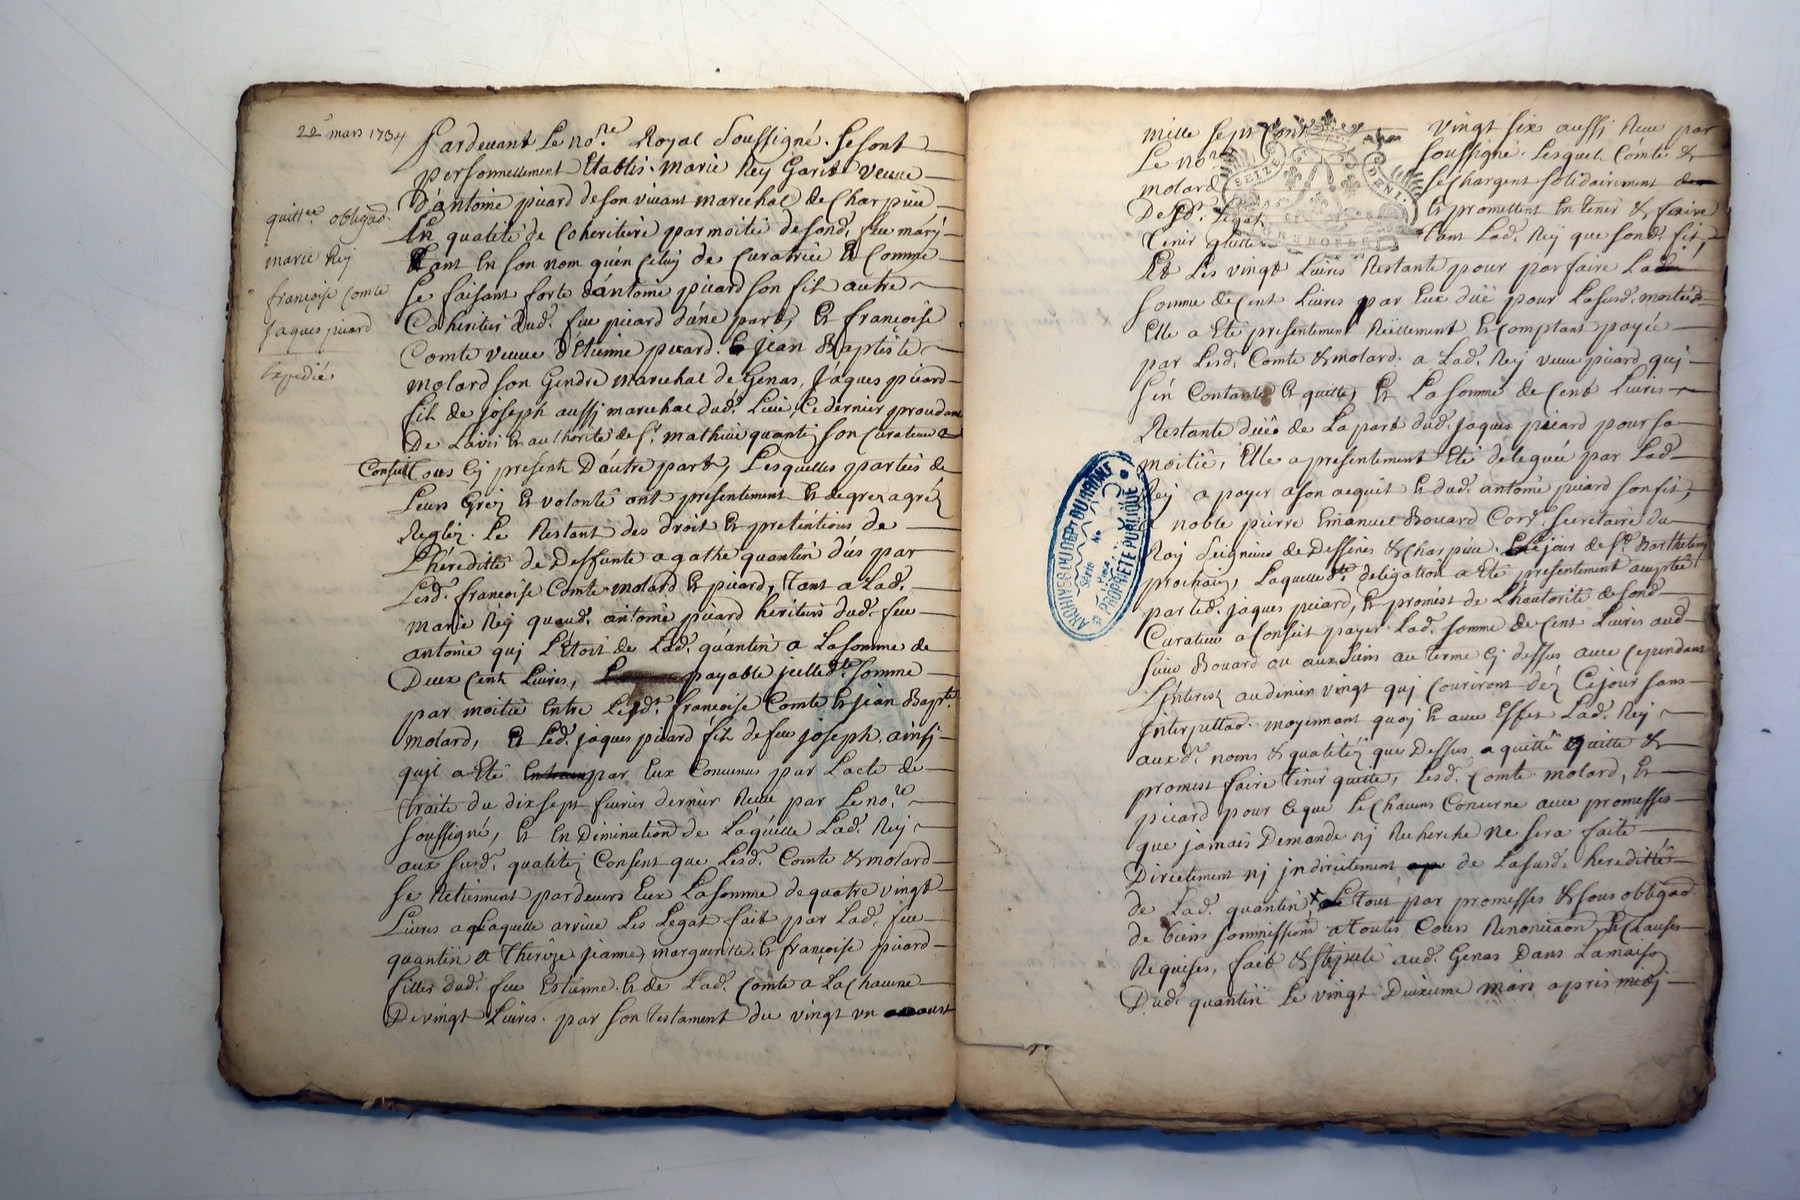 22 mars 1734
quittce obligaõn
marie Rey
françoise Comte
Jaques picard
Expedié
Pardevant Le nore Royal Soussigné. Se sont
personnellement Etablis. marie Rey Garit veuve
d'antoine picard de son vivant marechal de Charpieu
En qualité de Coheritiere par moitié de fond. feu mary
tant En son nom qu'en Celuy de Curatrice Et Comme
se faisant forte d'antoine picard son fils autre
Coheritier dud. feu picard d'une part, Et françoise
Comte veuve d'Etienne picard. Jean Baptiste
molard son Gendre marechal de Genas, Jaques picard
fils de joseph aussy marechal dud. Lieu, Ce dernier proudant
De L'avis Et authorité de sr. mathieu quantin son Curateur
Conseil tous Cy present D'autre part, Lesquelles parties de
Leurs Grez Et volonté ont presentement Et de grez a grez
Reglez. Le Restant des droit Et pretentions de
L'héreditté de Deffunte agathe quantin dus par
Lesd. françoise Comte molard Et picard, tant a Lad.
marie Réy quaud. antoine picard heritiers dud. feu
antoine quj L'Etoit de Lad. quantin a La somme de
Deux Cent Livres, payable jcelle dte. Somme
par moitié Entre Lesds. françoise Comte Et jean Bapte.
molard, Et Led. jaques picard fils de feu joseph. ainsj
qujl a Eté par Eux Convenus par L'acte de
traite du dix sept fevrier dernier Reçu par Le nore
soussigné, Et En Diminution de Laquelle Lad. Rey
aux susd. qualitéz Consent que Lesd. Comte & molard
se Retiennent pardevers Eux La somme de quatre vingt
Livres a Laquelle arrive Les Legat fait par Lad. feu
quantin a Thérèze jeanne, margueritte, Et françoise picard
filles dud. feu Estienne. Et de Lad. Comte a La Chacune
De vingt Livres. par son testament du vingt un aoust
mille sept Cent vingt six aussy Reçu par
Le nore soussigné. Lesquels Comte &
molard se Chargent Solidairement
Desd. Legat Et promettent En tenir & faire
tenir quitte tant Lad. Rey que sond. fils,
Et Les vingt Livres Restante pour parfaire Lad.
somme de Cent Livres par Eux düe pour La susd. moitié
Elle a Eté presentement Réellement Et Comptant payée
par Lesd. Comte & molard. a Lad. Rey veuve picard quj
s'en Contante Et quitte, Et La somme de Cent Livres
Restante düe de La part dud. Jaques picard pour sa
moitié, Elle a presentement Eté déleguée par Lad.
Rey a payer a son acquit Et dud. antoine picard son fils,
noble pierre Emanuel Bouard Consr. secretaire du
Roy seigneur de Dessines & Charpieu. jour de st. Barthelemy
prochain, Laquelle dte. délégation a Eté presentement acceptée
par Led. jaques picard, Et promést de L'hautorité de sond.
Curateur a Conseil payer Lad. somme de Cent Livres aud.
sieur Bouard ou aux siens au terme Cy dessus avec Cependant
L'interest au denier vingt quj Couriront déz Ce jour sans
Interpellaõn. moyennant quoj Et avec Effet Lad. Rey
auxd. noms & qualitéz que Dessus a quitté quitte &
promést faire tenir quitte, Lesd. Comte molard, Et
picard pour Ce que Le Chacuns Concerne avec promesses
que jamais Demande nj Recherche ne sera faite
Directement nj jndirectement de La susd. hereditté
de Lad. quantin Le tout par promesses & sous obligaõn
de biens soummissions a toutes Cours Renonciaõn Et Clauses
Requises, fait & stipulé aud. Genas Dans La maison
Dud. quantin Le vingt Deuxieme mars apres midj
SEIZE DENI.
GRENOBLE
ARCHIVES DU DEPT DU RHONE
Série
No
PROPRIÉTÉ PUBLIQUE